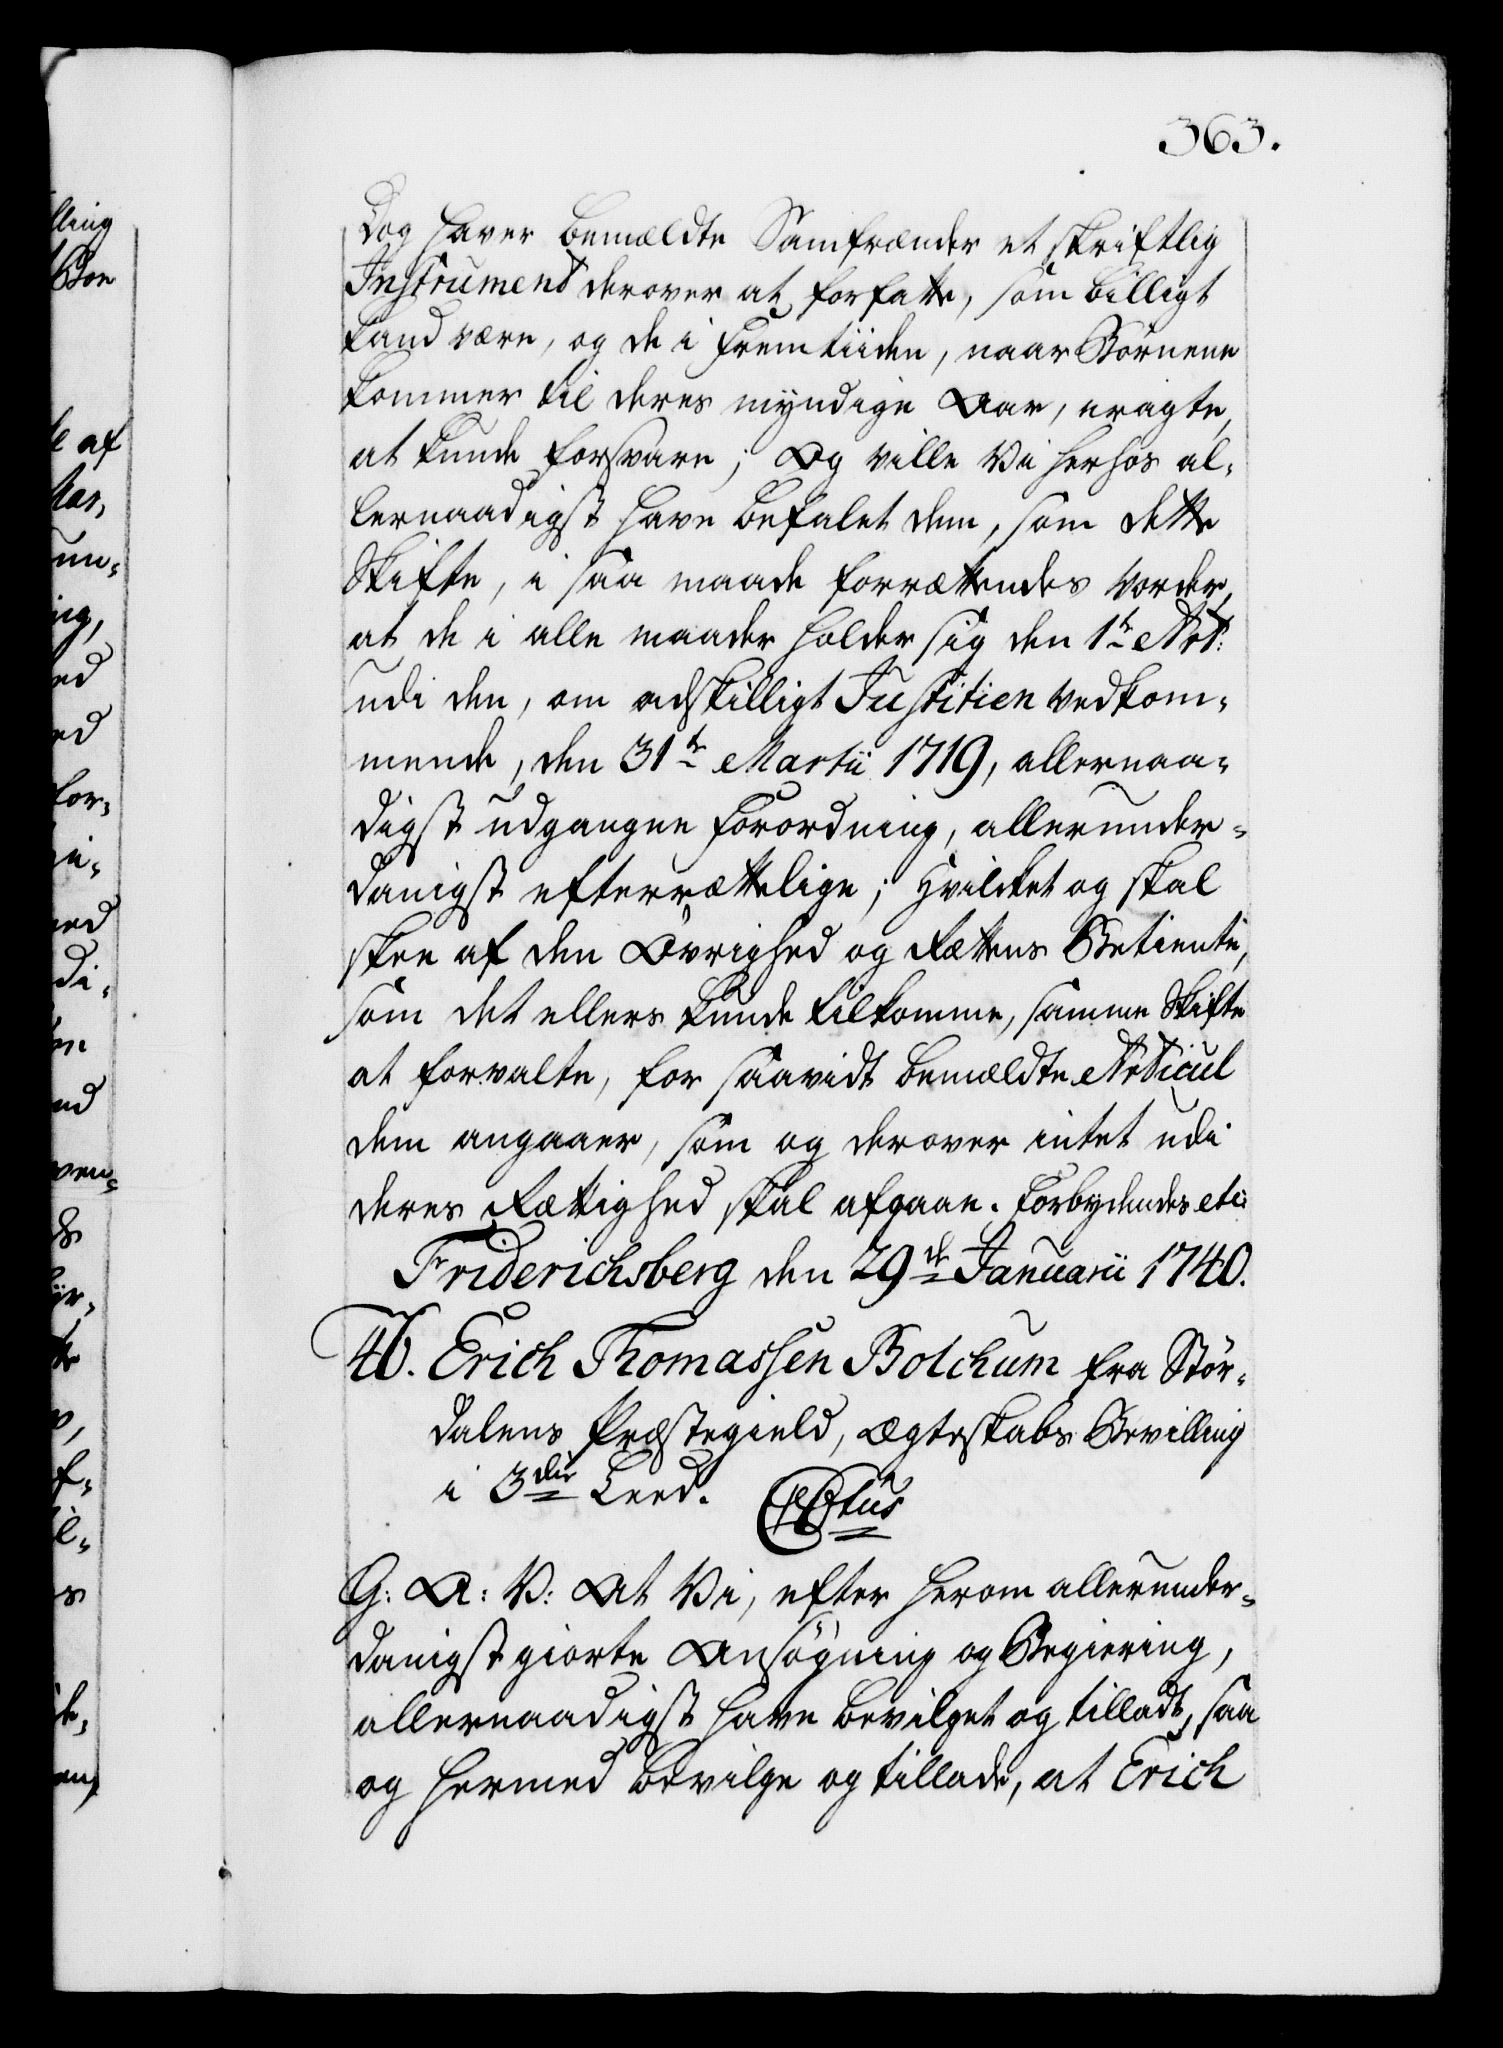 363.
Dog haver bemældte Samfrænder et skriftlig
Instrument derover at forfatte, som billigt
kand være, og de i Fremtiiden, naar Børnene
kommer til deres myndige Aar, eragte,
at kunde forsvare; Og ville Vi herhos al-
lernaadigst have befalet dem, som dette
Skifte, i saa maade forrættendes vorder,
at de i alle maader holder sig den 1te Art:
udi den, om adskilligt Justitien vedkom-
mende, den 31te Martii 1719, allernaa-
digst udgangne Forordning, allerunder-
danigst efterrættelige; Hvilcket og skal
skee af den Øvrighed og Rættens Betiente,
som det ellers kunde tilkomme, samme Skifte
at forvalte, for saavidt bemældte Articul
dem angaaer, som og derover intet udi
deres Rættighed skal afgaae. Forbydendes etc:
Friderichsberg den 29de Januarii 1740.
46. Erich Thomassen Bolchum fra Stør-
dalens Præstegield, Ægteskabs Bevilling
i 3die Leed.
G: A: V: At Vi, efter herom allerunder-
danigst giorte Ansøgning og Begiering,
allernaadigst have bevilget og tilladt, saa
og hermed bevilge og tillade, at Erich
lling
af
ed
ed
for-
di-
ven-